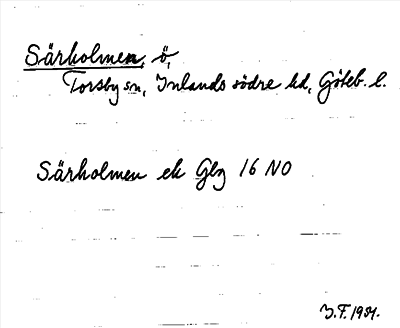 Särholmen, ö,
Torsby sn, Inlands södre hd, Göteb. l.
Särholmen ek Gbg 16 NO
J.F. 1934.